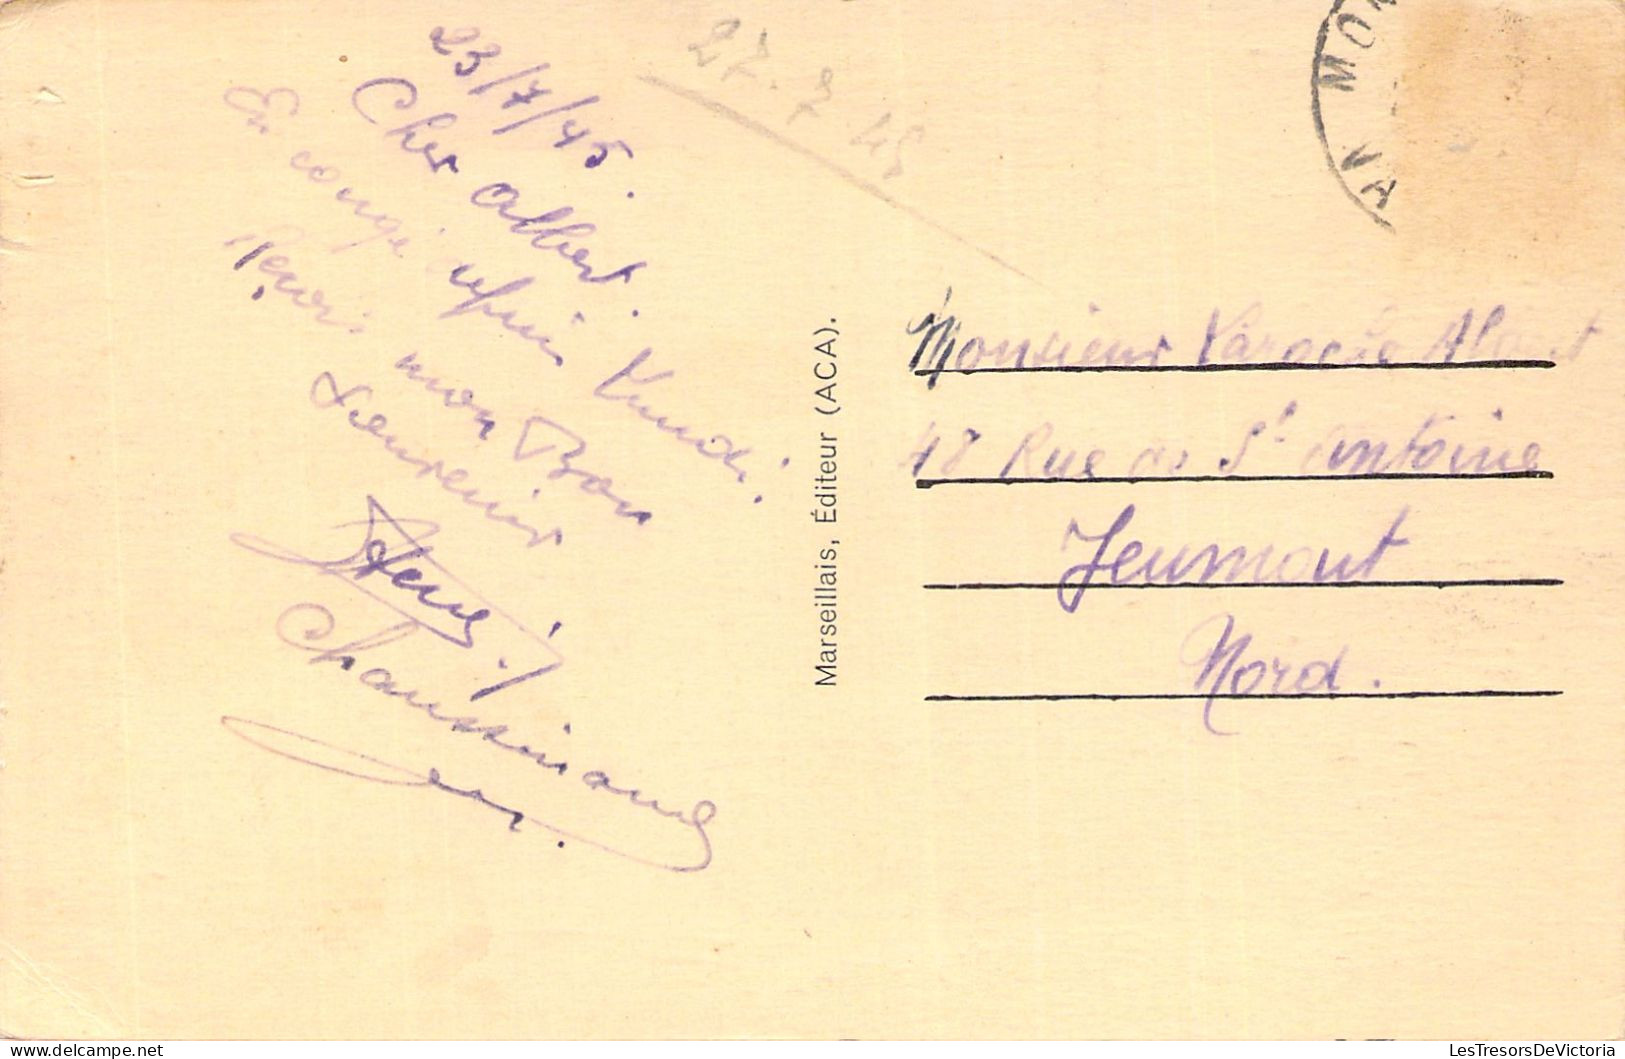 23/7/45.
Cher Albert.
En congé depuis Lundi.
Reçois mon Bon
Souvenir
Chaussinand
27.7 45
Marseillais, Éditeur (ACA).
Monsieur Albert
48 Rue de St Antoine
Jeumont
Nord.
MON
LesTresorsDeVictoria